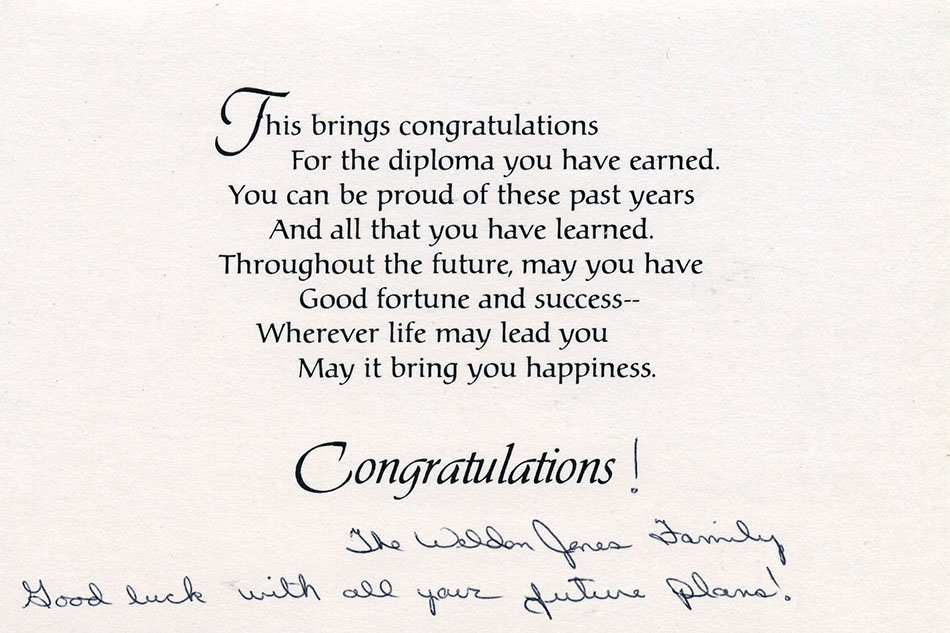 This brings congratulations
For the diploma you have earned.
You can be proud of these past years
And all that you have learned.
Throughout the future, may you have
Good fortune and success--
Wherever life may lead you
May it bring you happiness.
Congratulations!
The Weldon Jones Family
Good luck with all your future plans!